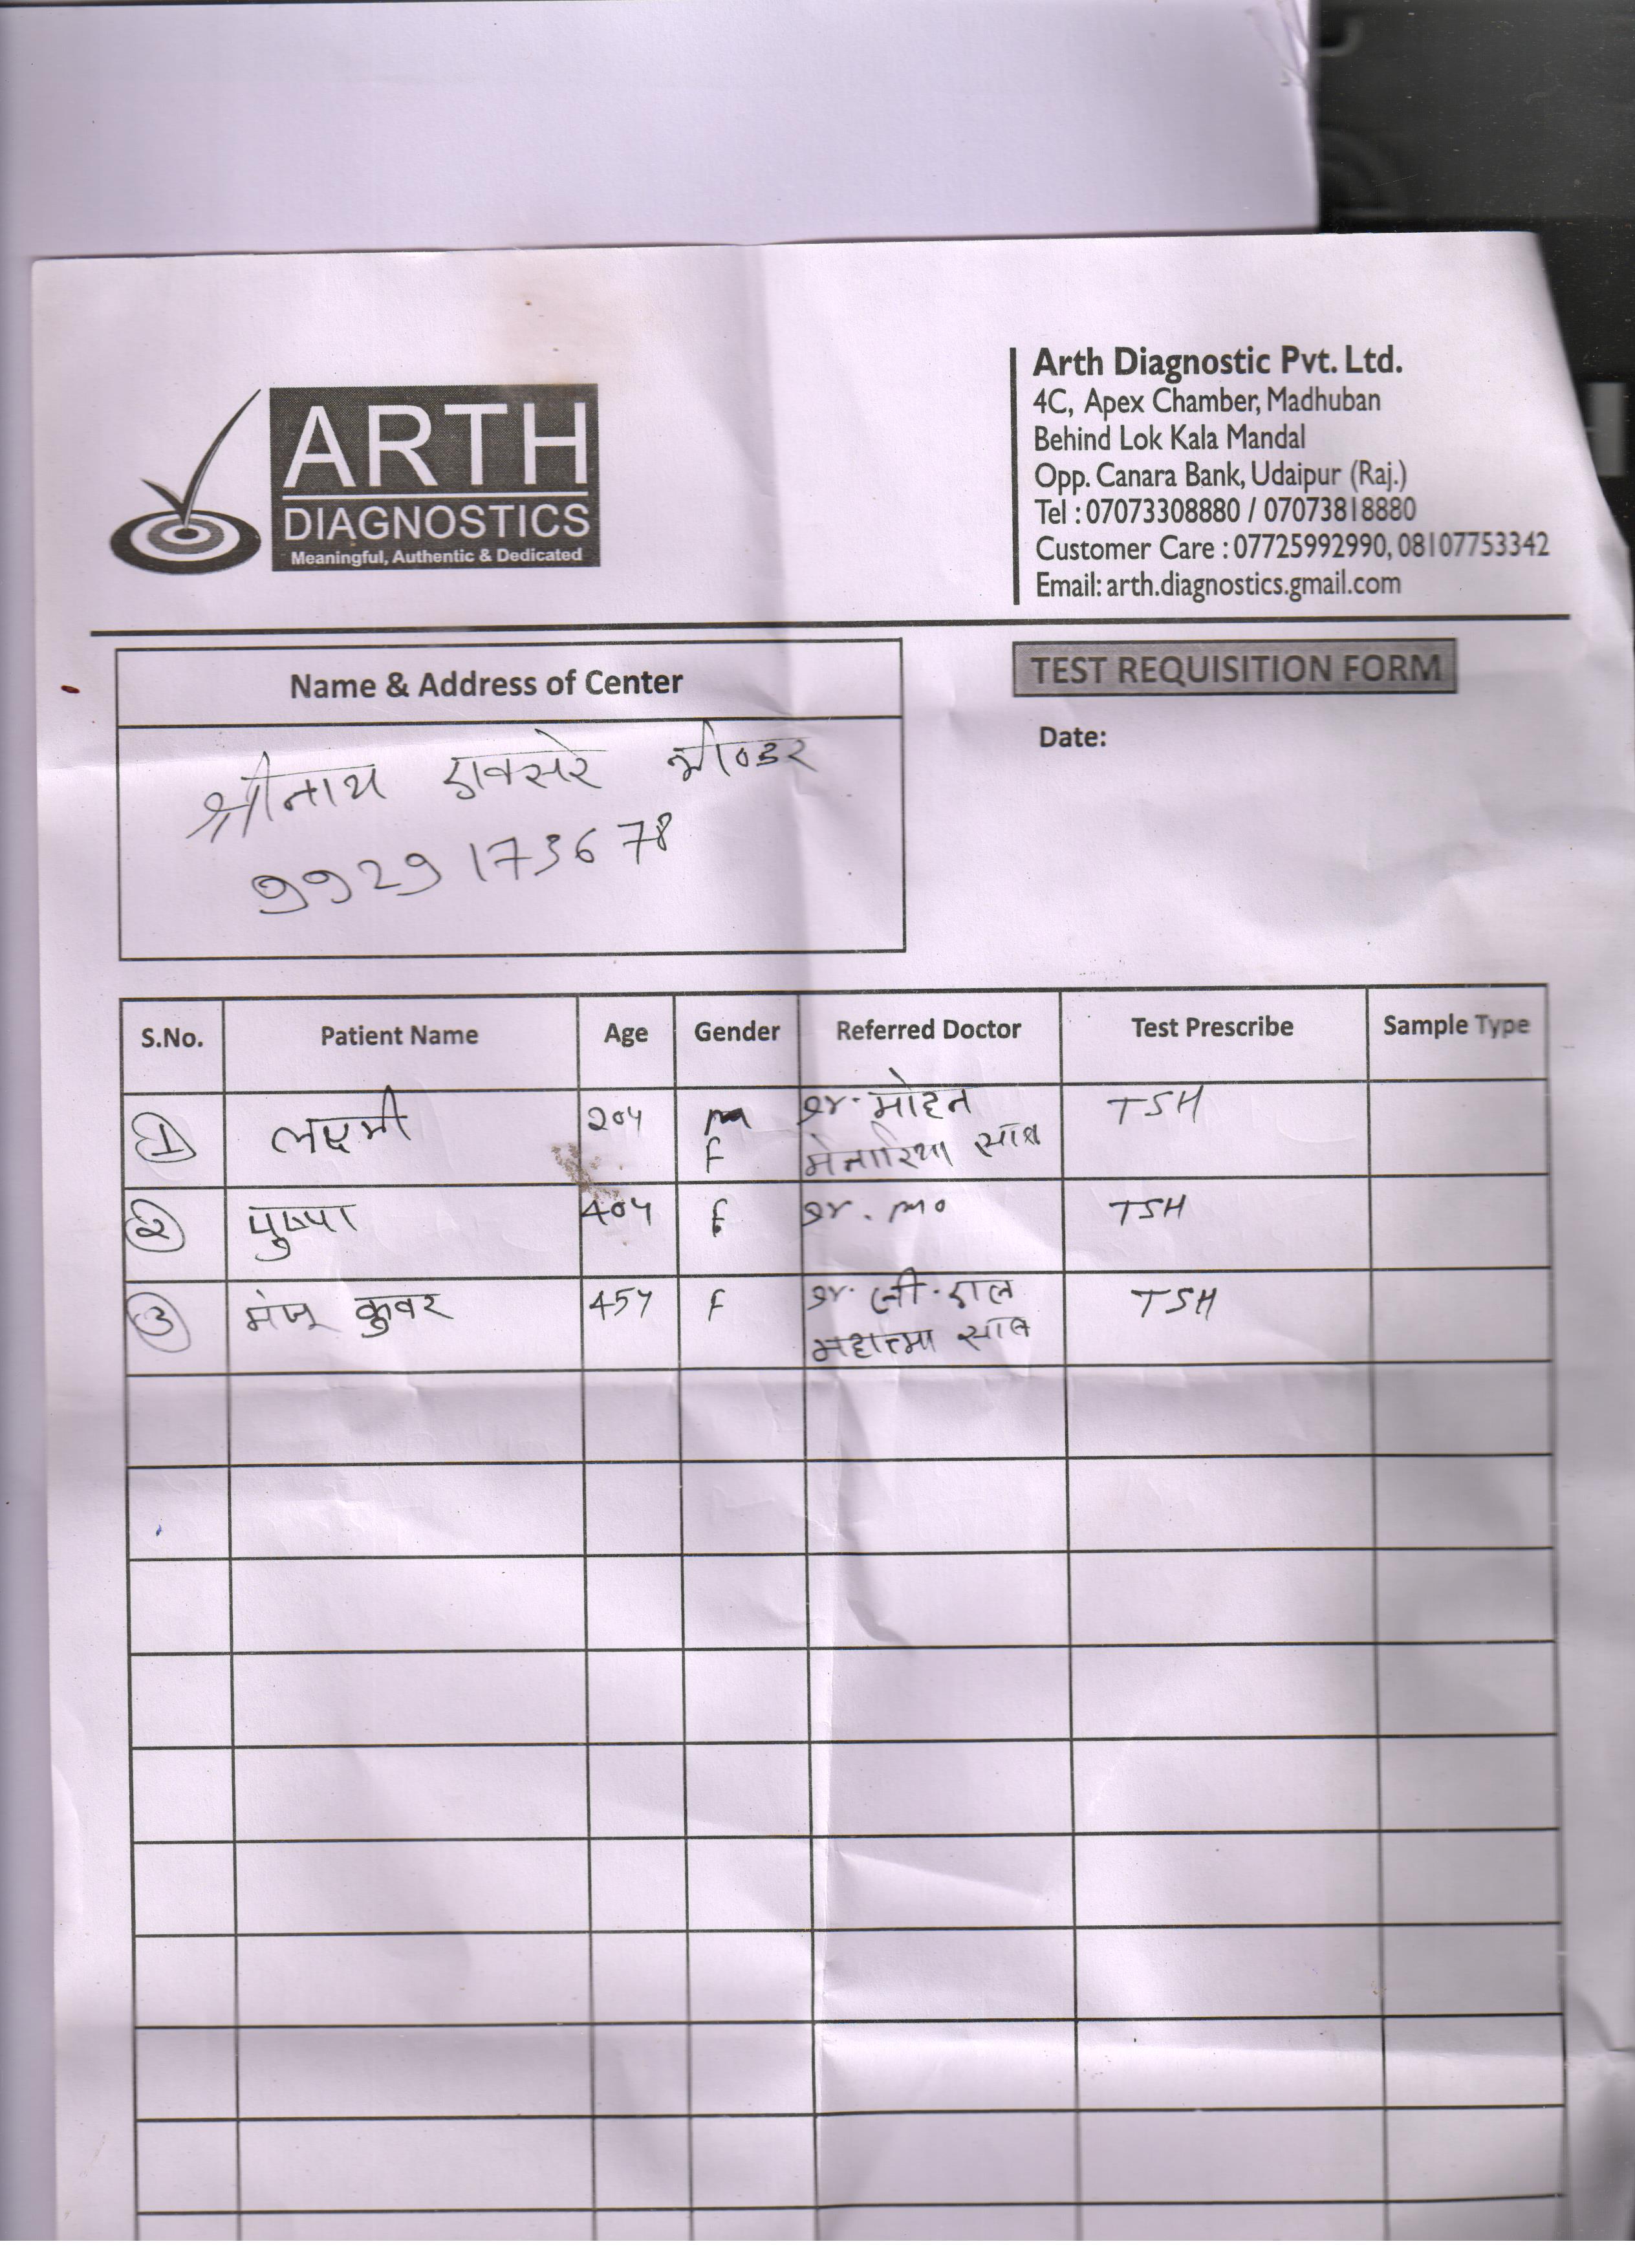 ARTH
DIAGNOSTICS
Meaningful, Authentic & Dedicated
Arth Diagnostic Pvt. Ltd.
4C, Apex Chamber, Madhuban
Behind Lok Kala Mandal
Opp. Canara Bank, Udaipur (Raj.)
Tel : 07073308880 / 07073818880
Customer Care : 07725992990, 08107753342
Email: arth.diagnostics.gmail.com
Name & Address of Center
TEST REQUISITION FORM
Date:
श्रीनाथ एक्सरे भीण्डर
9929173678
S.No. Patient Name Age Gender Referred Doctor Test Prescribe Sample Type
1 लक्ष्मी 20y F डॉ. मोहन TSH
मेनारिया साब
2 पुष्पा 40y F डॉ. mo TSH
3 मंजू कुवर 45y F डॉ. TSH
महात्मा साब